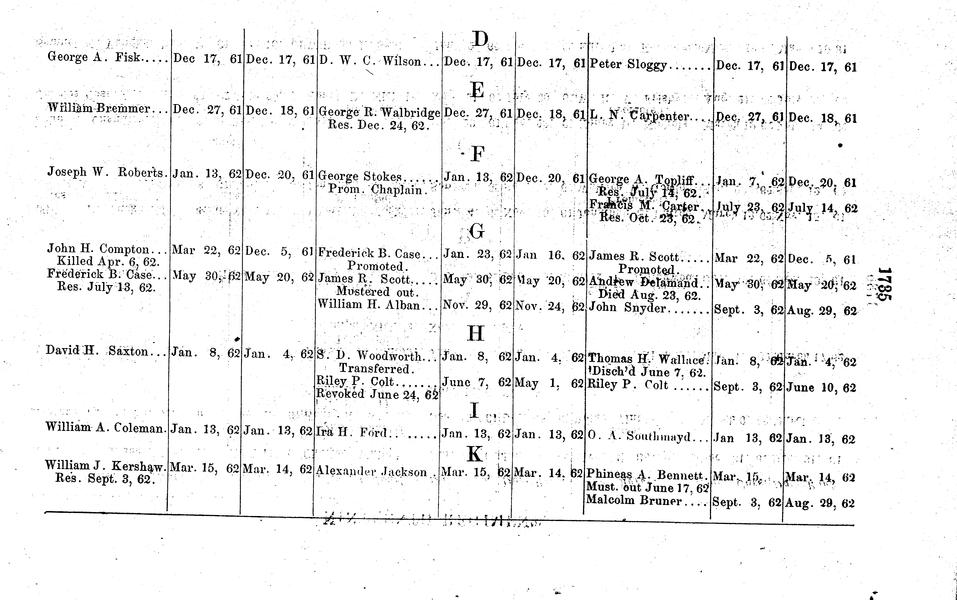 D
George A. Fisk..... Dec 17, 61 Dec. 17, 61 D. W. C. Wilson... Dec. 17, 61 Dec. 17, 61 Peter Sloggy....... Dec. 17, 61 Dec. 17, 61
E
William Bremmer... Dec. 27, 61 Dec. 18, 61 George R. Walbridge Dec. 27, 61 Dec. 18, 61 L. N. Carpenter.... Dec. 27, 61 Dec. 18, 61
Res. Dec. 24, 62.
F
Joseph W. Roberts. Jan. 13, 62 Dec. 20, 61 George Stokes...... Jan. 13, 62 Dec. 20, 61 George A. Topliff... Jan. 7, 62 Dec. 20, 61
Prom. Chaplain. Res. July 14, 62.
Francis M. Carter.. July 23, 62 July 14, 62
Res. Oct. 23, 62.
G
John H. Compton... Mar 22, 62 Dec. 5, 61 Frederick B. Case... Jan. 23, 62 Jan 16. 62 James R. Scott..... Mar 22, 62 Dec. 5, 61
Killed Apr. 6, 62. Promoted. Promoted.
Frederick B. Case... May 30, 62 May 20, 62 James R. Scott..... May 30, 62 May 20, 62 Andrew Delamand... May 30, 62 May 20, 62
Res. July 13, 62. Mustered out. Died Aug. 23, 62.
William H. Alban... Nov. 29, 62 Nov. 24, 62 John Snyder....... Sept. 3, 62 Aug. 29, 62
1785
H
David H. Saxton... Jan. 8, 62 Jan. 4, 62 S. D. Woodworth... Jan. 8, 62 Jan. 4, 62 Thomas H. Wallace. Jan. 8, 62 Jan. 4, 62
Transferred. Disch'd June 7, 62.
Riley P. Colt....... June 7, 62 May 1, 62 Riley P. Colt ...... Sept. 3, 62 June 10, 62
Revoked June 24, 62
I
William A. Coleman. Jan. 13, 62 Jan. 13, 62 Ira H. Ford... ..... Jan. 13, 62 Jan. 13, 62 O. A. Southmayd... Jan 13, 62 Jan. 13, 62
K
William J. Kershaw. Mar. 15, 62 Mar. 14, 62 Alexander Jackson.. Mar. 15, 62 Mar. 14, 62 Phineas A. Bennett. Mar. 15, Mar. 14, 62
Res. Sept. 3, 62. Must. out June 17, 62
Malcolm Bruner.... Sept. 3, 62 Aug. 29, 62